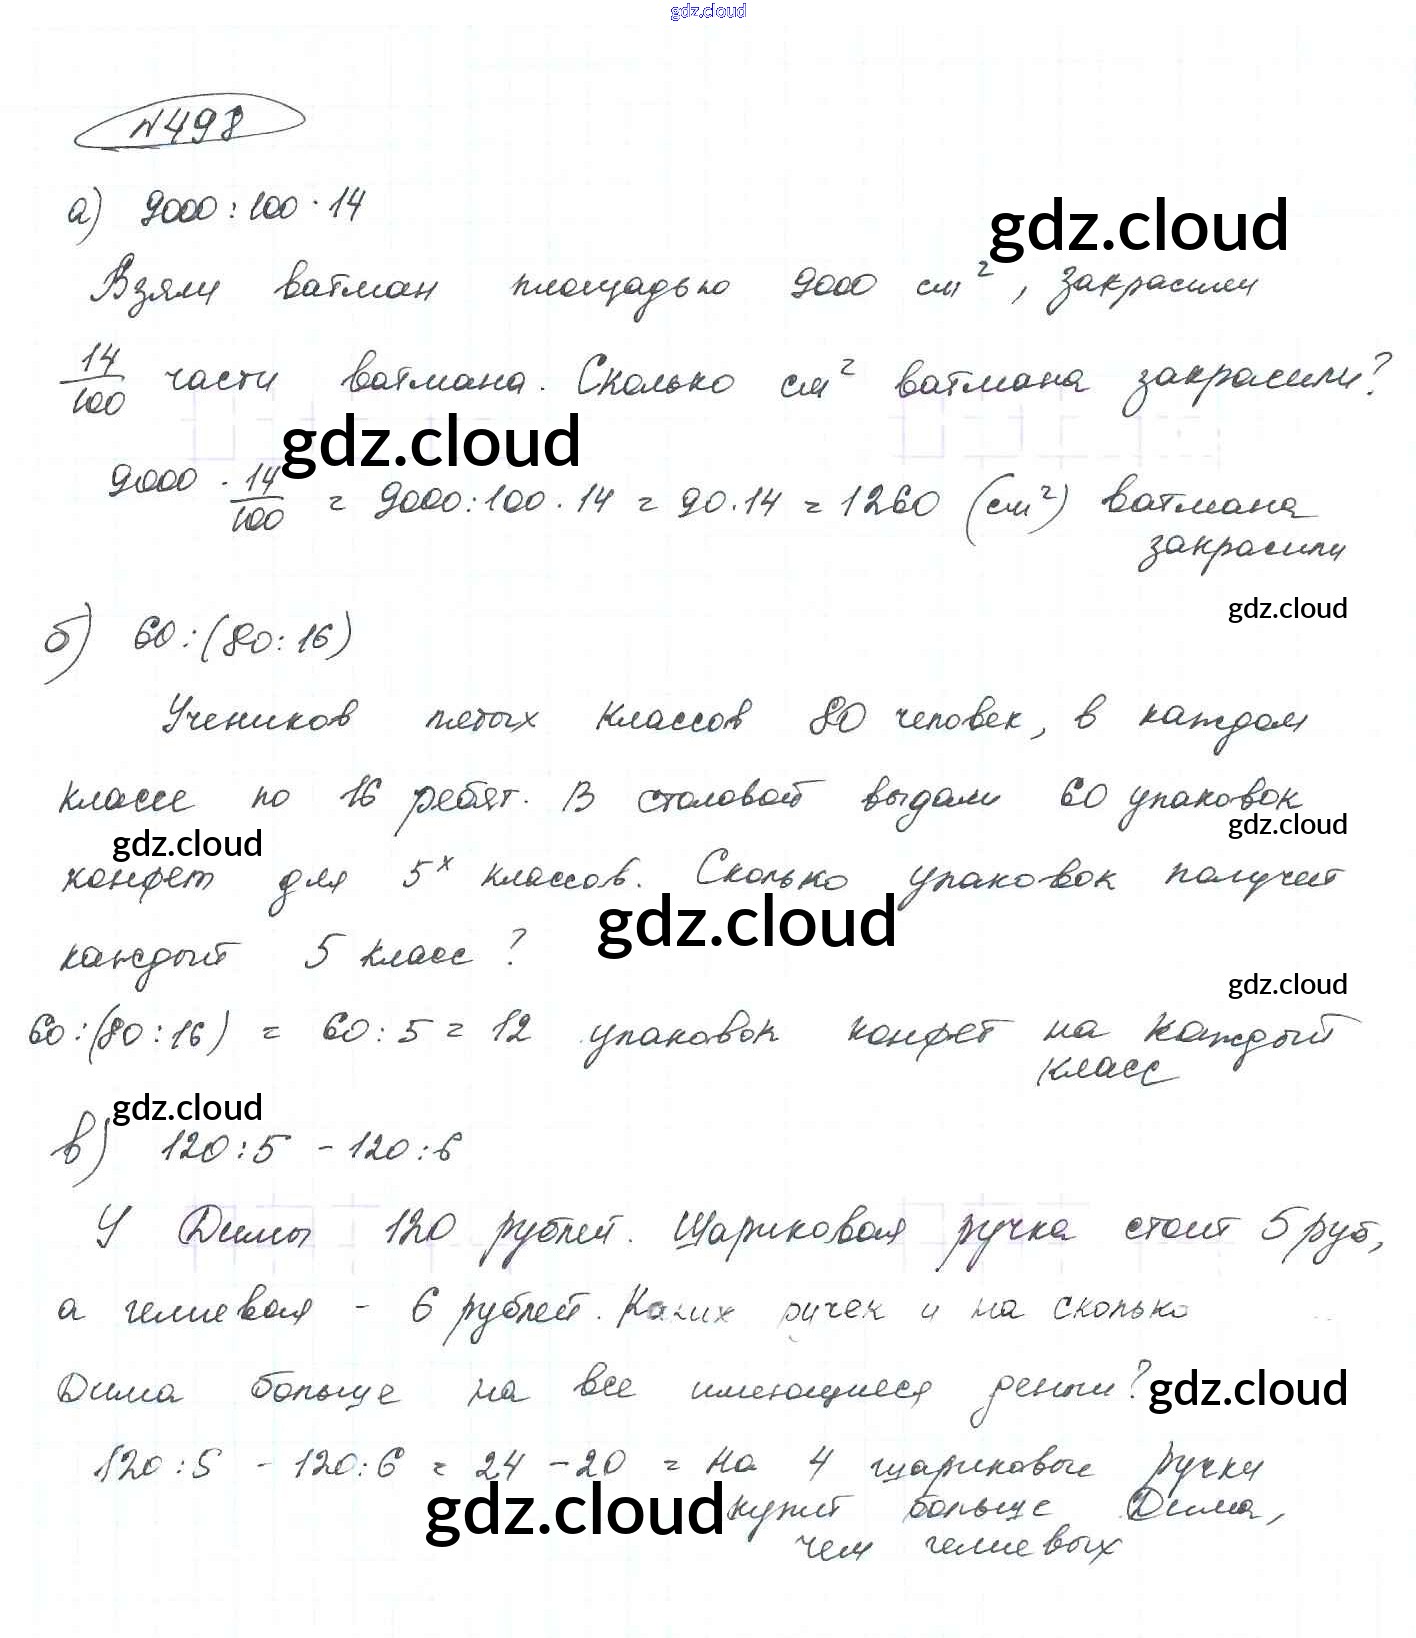 gdz.cloud
№498
а) 9000:100·14
gdz.cloud
Взяли ватман площадью 9000 см², закрасили
14/100 части ватмана. Сколько см² ватмана закрасили?
gdz.cloud
9000 · 14/100 = 9000:100·14 = 90·14 = 1260 (см²) ватмана
закрасили
gdz.cloud
б) 60:(80:16)
Учеников пятых классов 80 человек, в каждом
классе по 16 ребят. В столовой выдали 60 упаковок
gdz.cloud
gdz.cloud
конфет для 5х классов. Сколько упаковок получит
gdz.cloud
каждый 5 класс?
gdz.cloud
60:(80:16) = 60:5 = 12 упаковок конфет на каждый
класс
gdz.cloud
в) 120:5 - 120:6
У Димы 120 рублей. Шариковая ручка стоит 5 руб,
а гелиевая - 6 рублей. Каких ручек и на сколько
Дима больше на все имеющиеся деньги?
gdz.cloud
120:5 - 120:6 = 24 - 20 = на 4 шариковые ручки
gdz.cloud
купит больше Дима,
чем гелиевых